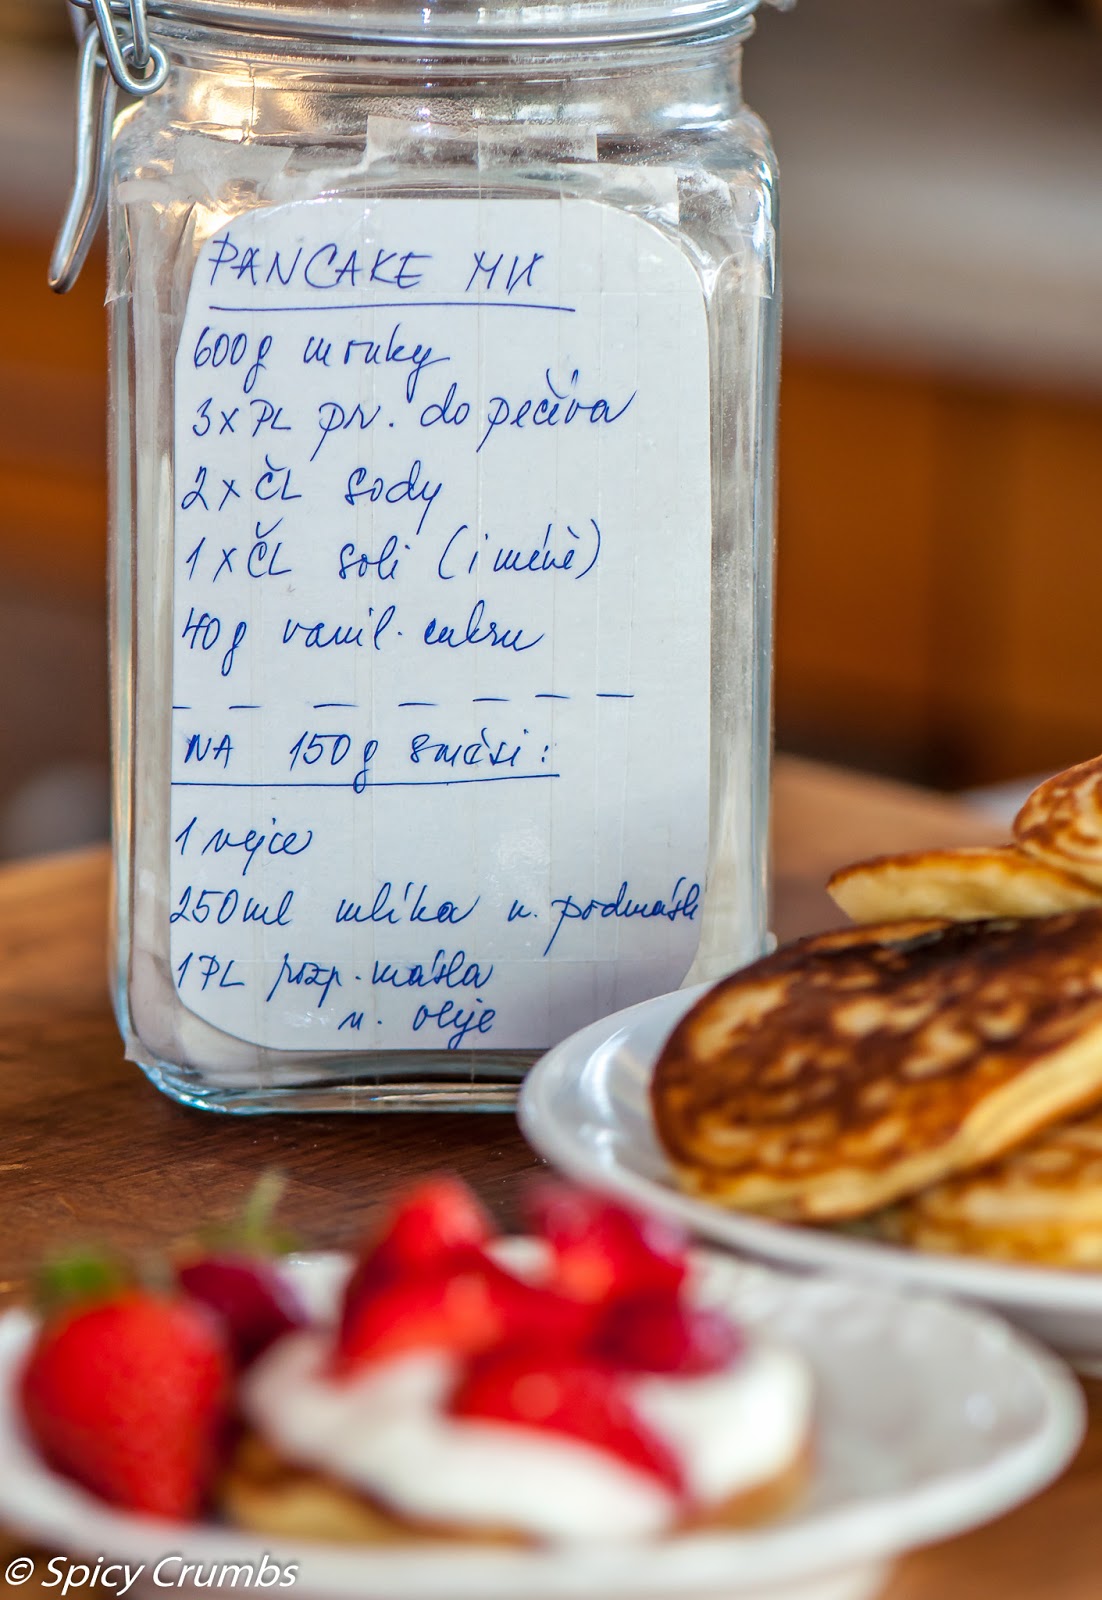 PANCAKE MIX
600g mouky
3x PL pr. do pečiva
2x ČL sody
1x ČL soli (i méně)
40g vanil. cukru
NA 150g směsi:
1 vejce
250ml mlíka n. podmáslí
1 PL rozp. másla
n. oleje
© Spicy Crumbs